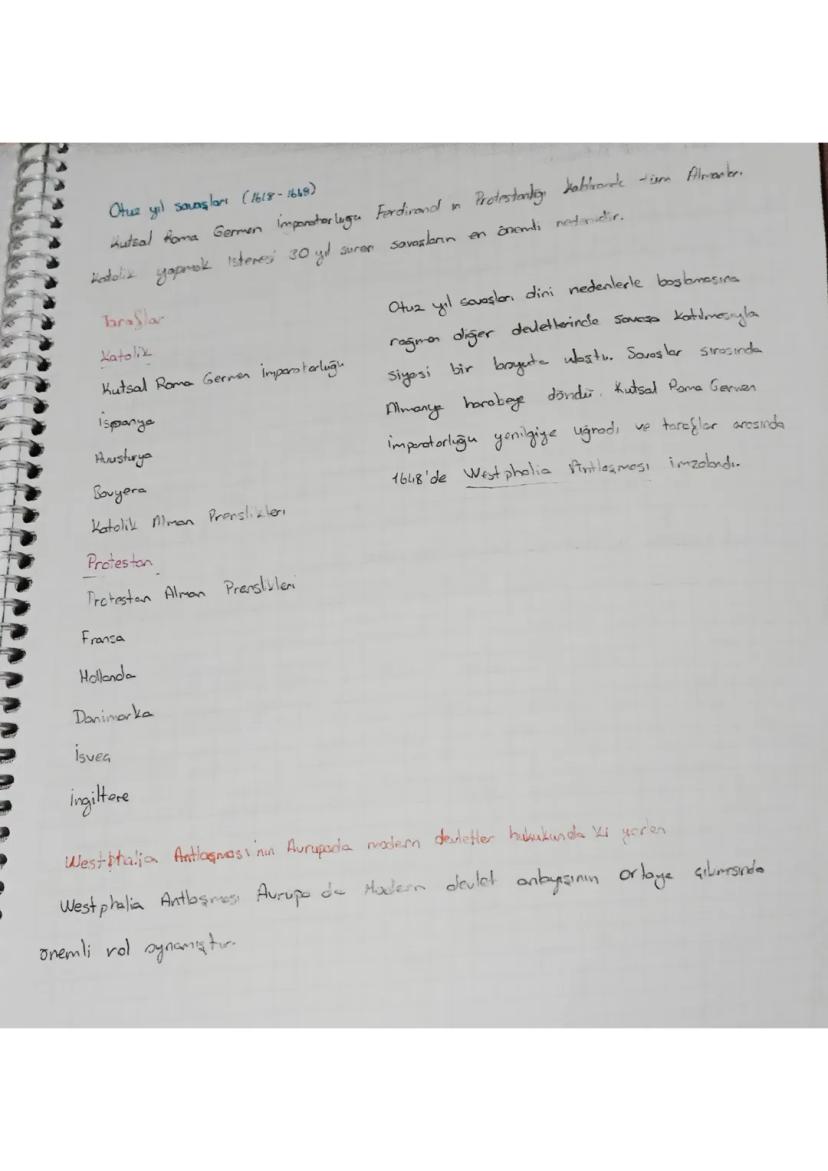 Otuz yıl savaşları (1618-1648)
Kutsal Roma Germen İmparatorluğu Ferdinand ın Protestanlığı kaldırarak tüm Almanları
Katolik yapmak istemesi 30 yıl süren savaşların en önemli nedenidir.
Taraflar
Katolik
Kutsal Roma Germen İmparatorluğu
İspanya
Avusturya
Bavyera
Katolik Alman Prenslikleri
Protestan
Protestan Alman Prenslikleri
Fransa
Hollanda
Danimarka
İsveç
İngiltere
Otuz yıl savaşları dini nedenlerle başlamasına
rağmen diğer devletlerinde savaşa katılmasıyla
siyasi bir boyuta ulaştı. Savaşlar sırasında
Almanya harabeye döndü. Kutsal Roma Germen
imparatorluğu yenilgiye uğradı ve taraflar arasında
1648'de Westphalia Antlaşması imzalandı.
Westphalia Antlaşması'nın Avrupada modern devletler hukukunda ki yerleri
Westphalia Antlaşması Avrupa da Modern devlet anlayışının ortaya çıkmasında
önemli rol oynamıştır.